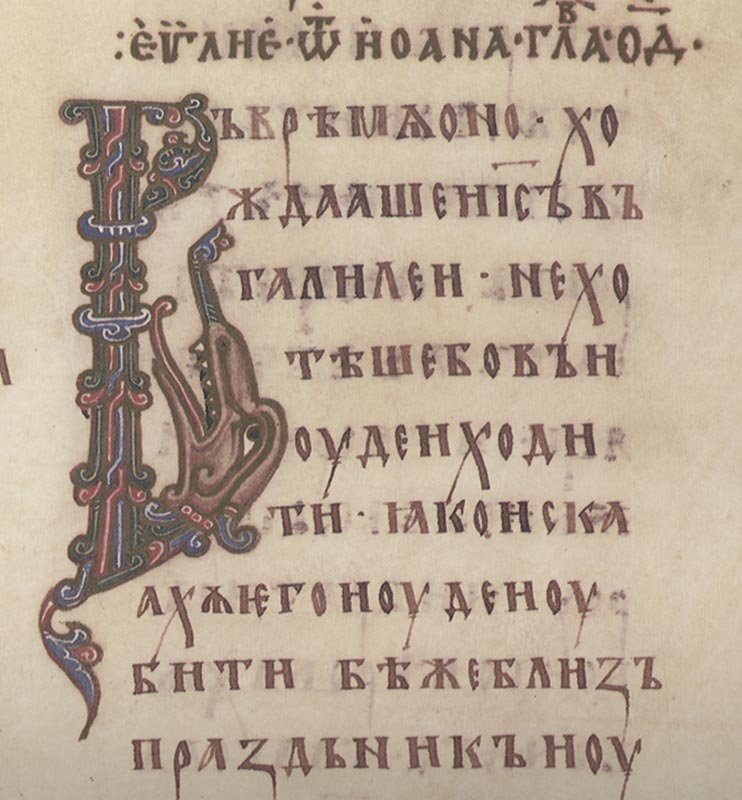 :еѵ҃глие·ѿ иоана·глаⷡ҇·о҃д·
Въврѣмѧоно·хо
ждаашеиіс҃ъвъ
галилеи·нехо
тѣшебовъи
оудеиходи
ти·ꙗкоиска
ахѫѥгоиоудеиоу
бити бѣжеблизъ
праздьникъиоу